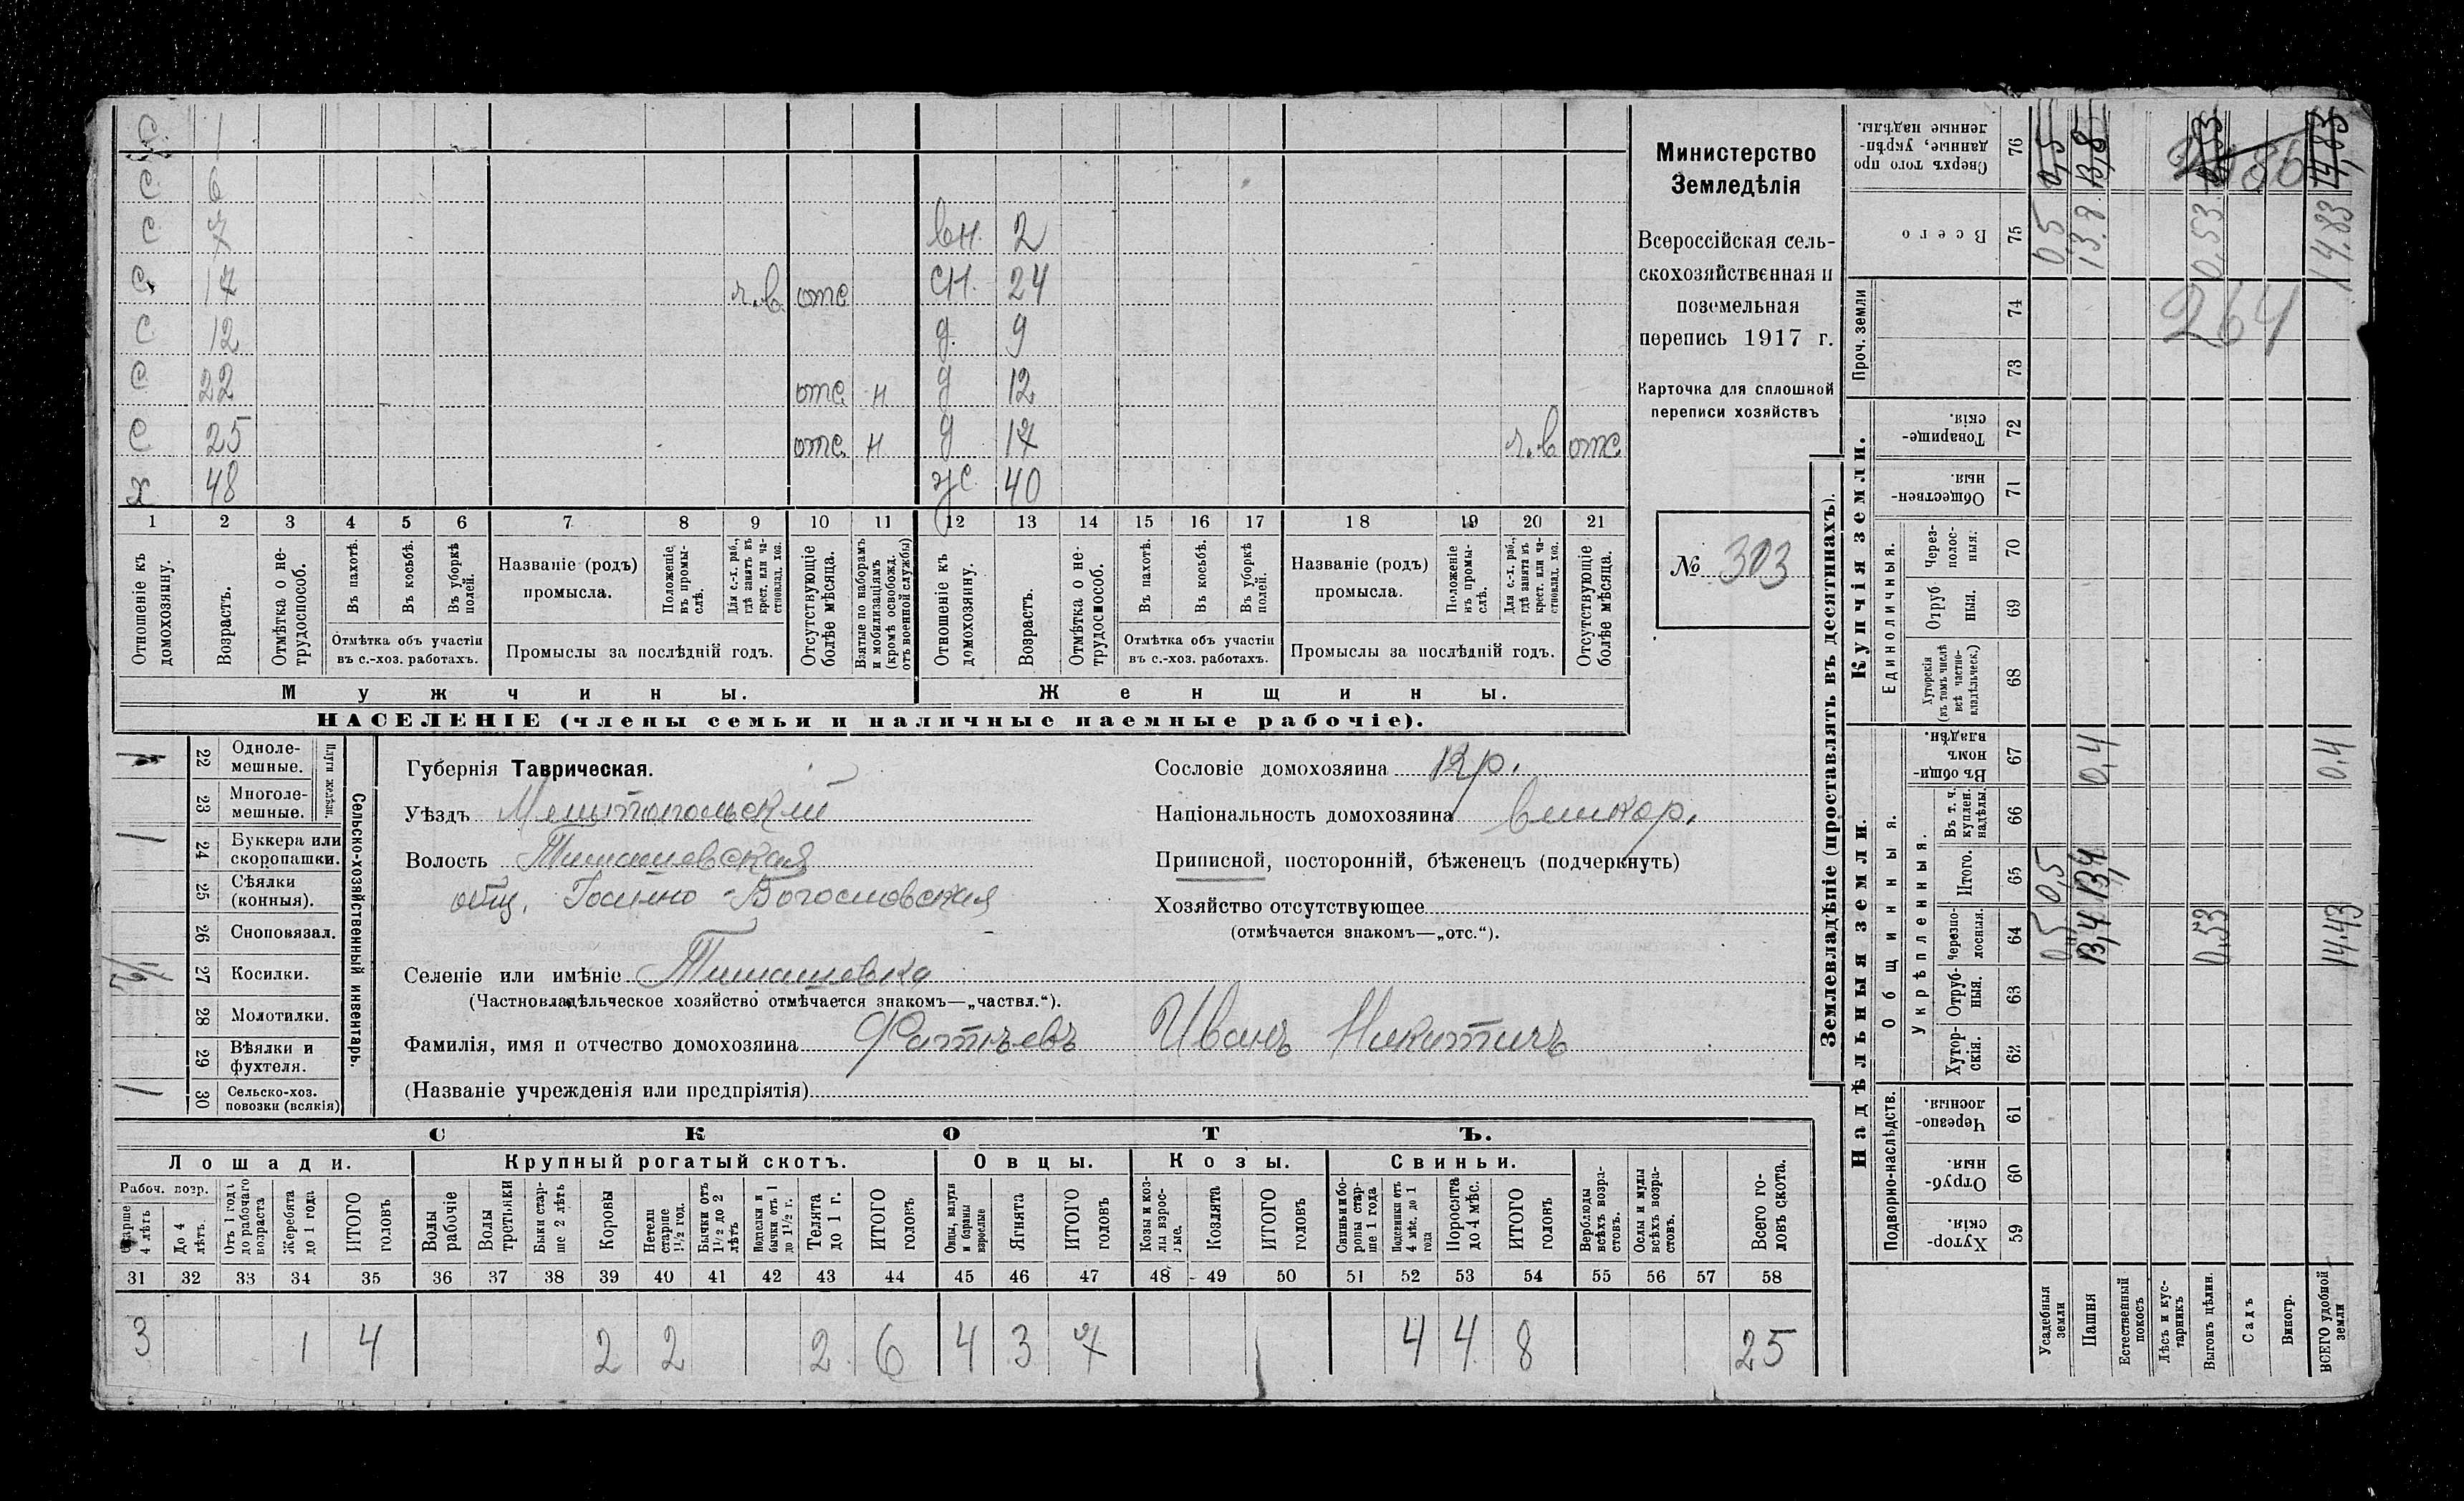 С. 1
С 6
С 7 вн. 2
С 17 г.в. отс сн. 24
С 12 д. 9
С 22 отс н д 12
С 25 отс н д 17 г.в отс
х 48 ж 40
1 2 3 4 5 6 7 8 9 10 11 12 13 14 15 16 17 18 19 20 21
Отношеніе къ домохозяину.
Возрастъ.
Отмѣтка о не-трудоспособ.
Въ пахотѣ.
Въ косьбѣ.
Въ уборкѣ полей.
Отмѣтка объ участіи
въ с.-хоз. работахъ.
Названіе (родъ)
промысла.
Положеніе въ промы-слѣ.
Для с.-х. раб., гдѣ занятъ въ крест. или ча-стновлад. хоз.
Промыслы за послѣдній годъ.
Отсутствующіе болѣе мѣсяца.
Взятые по наборамъ и мобилизаціямъ (кромѣ освобожд. отъ военной службы)
Отношеніе къ домохозяину.
Возрастъ.
Отмѣтка о не-трудоспособ.
Въ пахотѣ.
Въ косьбѣ.
Въ уборкѣ полей.
Отмѣтка объ участіи
въ с.-хоз. работахъ.
Названіе (родъ)
промысла.
Положеніе въ промы-слѣ.
Для с.-х. раб., гдѣ занята въ крест. или ча-стновлад. хоз.
Промыслы за послѣдній годъ.
Отсутствующіе болѣе мѣсяца.
Мужчины. Женщины.
НАСЕЛЕНІЕ (члены семьи и наличные наемные рабочіе).
Министерство
Земледѣлія
Всероссійская сель-
скохозяйственная и
поземельная
перепись 1917 г.
Карточка для сплошной
переписи хозяйствъ
№ 303
Сельско-хозяйственный инвентарь.
Плуги желѣзн.
22 Одноле-мешные.
23 Многоле-мешные.
1 24 Буккера или скоропашки.
25 Сѣялки (конныя).
26 Сноповязал.
27 Косилки.
28 Молотилки.
29 Вѣялки и фухтеля.
1 30 Сельско-хоз. повозки (всякія)
Губернія Таврическая.
Уѣздъ Мелитопольскій
Волость Тимашевская
общ. Іоанно-Богословская
Селеніе или имѣніе Тимашевка
(Частновладѣльческое хозяйство отмѣчается знакомъ—„частвл.“).
Фамилія, имя и отчество домохозяина Фатѣевъ Иванъ Никитичъ
(Названіе учрежденія или предпріятія)
Сословіе домохозяина Кр.
Національность домохозяина великор.
Приписной, посторонній, бѣженецъ (подчеркнуть)
Хозяйство отсутствующее
(отмѣчается знакомъ—„отс.“).
СКОТЪ.
Лошади. Крупный рогатый скотъ. Овцы. Козы. Свиньи.
Рабоч. возр.
Старше 4 лѣтъ
До 4 лѣтъ.
Отъ 1 года до рабочаго возраста
Жеребята до 1 года
ИТОГО головъ
Волы рабочіе
Волы третьяки
Быки стар-ше 2 лѣтъ
Коровы
Нетели старше 1½ год.
Бычки отъ 1½ до 2 лѣтъ
Подтелки и бычки отъ 1 до 1½ г.
Телята до 1 г.
ИТОГО головъ
Овцы, валухи и бараны взрослые
Ягнята
ИТОГО головъ
Козы и коз-лы взрос-лые.
Козлята
ИТОГО головъ
Свиньи и бо-ровы стар-ше 1 года
Подсвинки отъ 4 мѣс. до 1 года
Поросята до 4 мѣс.
ИТОГО головъ
Верблюды всѣхъ возра-стовъ.
Ослы и мулы всѣхъ возра-стовъ.
Всего го-ловъ скота.
31 32 33 34 35 36 37 38 39 40 41 42 43 44 45 46 47 48 49 50 51 52 53 54 55 56 57 58
3 1 4 2 2 2 6 4 3 7 4 4 8 25
Землевладѣніе (проставлять въ десятинахъ).
Надѣльныя земли. Купчія земли. Проч. земли
Подворно-наслѣдств. Общинныя. Укрѣпленныя. Единоличныя.
Хутор-скія. 59
Отруб-ныя. 60
Черезпо-лосныя. 61
Хутор-скія. 62
Отруб-ныя. 63
Черезпо-лосныя. 64 0,5 13,4 0,53 14.43
Итого. 65 0,5 13,4
Въ т. ч. куплен. надѣлы. 66
Въ общи-номъ владѣн. 67 0,4 0.4
Хуторскія (въ томъ числѣ всѣ частно-владѣльческ.) 68
Отруб ныя. 69
Через-полос-ныя. 70
Обществен-ныя. 71
Товарище-скія. 72
73
74 264
Всего 75 0 5 13.8 0,53 14.83
Сверхъ того про данные, укрѣп-ленные надѣлы. 76 0,5 13,8 0,53 14,83
Усадебныя земли
Пашня
Естественный покосъ
Лѣсъ и кус-тарникъ
Выгонъ цѣлин.
Садъ
Виногр.
ВСЕГО удобной земли